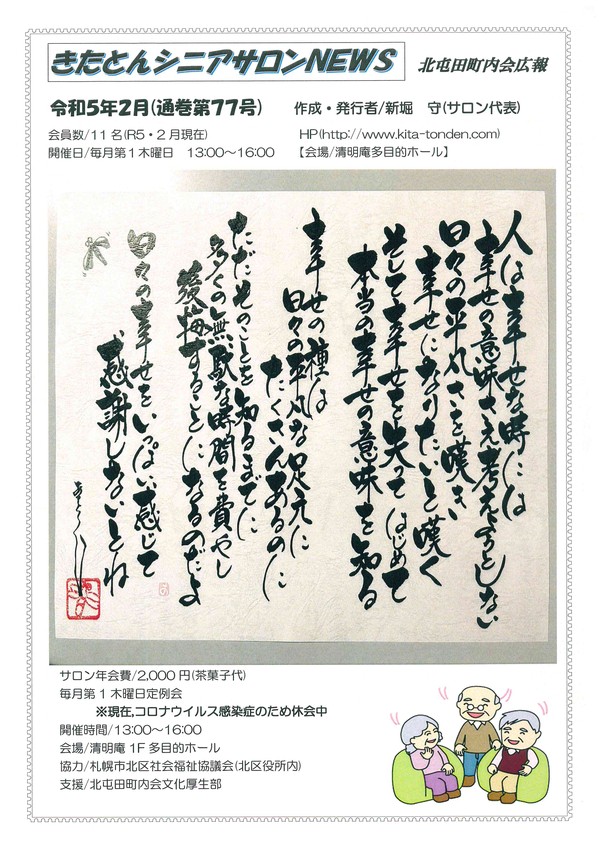 きたとんシニアサロンNEWS
北屯田町内会広報
令和5年2月(通巻第77号)
作成・発行者/新堀　守(サロン代表)
会員数/11名(R5・2月現在)
HP(http://www.kita-tonden.com)
開催日/毎月第1木曜日　13:00～16:00
【会場/清明庵多目的ホール】
人は幸せな時には
幸せの意味さえ考えようとしない
日々の平凡さを嘆き
幸せになりたいと嘆く
そして幸せを失ってはじめて
本当の幸せの意味を知る
幸せの種は
日々の平凡な足元に
たくさんあるのに
ただそのことを知るまでに
多くの無駄な時間を費やし
後悔することになるのだよ
日々の幸せをいっぱい感じて
感謝しないとね
サロン年会費/2,000円(茶菓子代)
毎月第1木曜日定例会
※現在,コロナウイルス感染症のため休会中
開催時間/13:00～16:00
会場/清明庵 1F多目的ホール
協力/札幌市北区社会福祉協議会(北区役所内)
支援/北屯田町内会文化厚生部